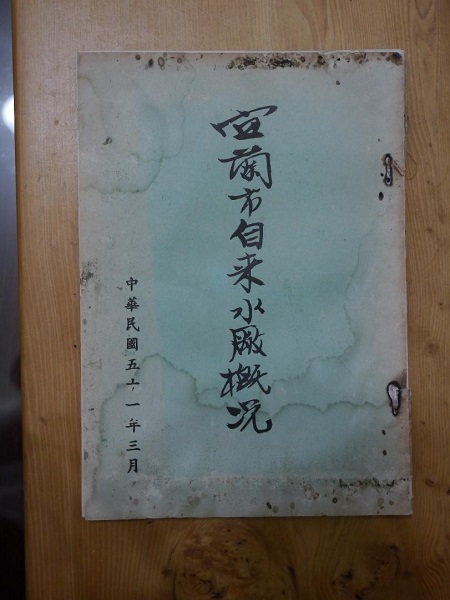 宜蘭市自来水廠概況
中華民國五十一年三月